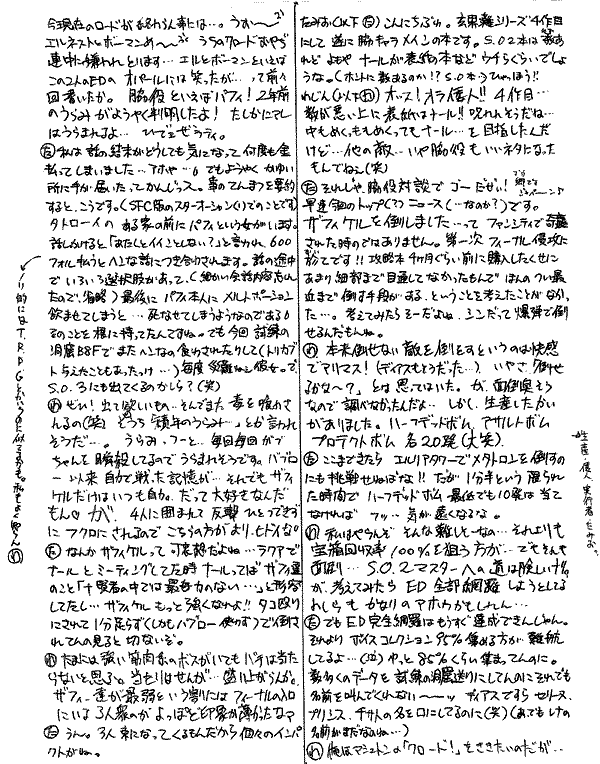 たみお(以下た)こんにちぶわ。玄果難シリーズ4作目
にして遂に脇キャラメインの本です。S.O.2本は数あ
れど よもや ナールが表紙の本など ウチらぐらいでしょ
うな。(ホントに
れじん(以下れ)オッス!オラ偉人!! 4作目…
数が悪い上に表紙はナール!! 呪われそうだね…
中もめくっもめくってもナール…を目指したんだ
けど…他の敵…いや脇役もいいネタになった
もんでねェ(笑)
た それじゃ、脇役対談で ゴーだぜい!
早速今回のトップ(?)ニュース(…なのか?)です。
ザフィケルを倒しました…って ファンシティで
された時のではありません。第一次 フィーナル侵攻に
於てです!! 攻略本 4ヶ月ぐらい前に購入したくせに
あまり細部まで目通してなかったもんで ほんの つい最
近まで 倒す手段がある、ということを考えたことがなかっ
た…。考えてみたら ミーだよね。シンだって爆弾で倒
せるんだもんね。
れ 本来倒せない敵を倒とすというのは快感
でアリマス!(ディアスもそうだった…) いやさ「倒せ
るかな〜?」とは思ってはいた。が、面倒臭そう
なので調べなかったんだよ… しかし、生産したかい
がありました。ハーフデッドボム、アサルトボム
プロテクトボム 各20発(大笑)
た ここまできたら エルリアタワーでメタトロンを倒すの
にも挑戦せねばな!! だが1分半という限られ
た時間で ハーフデッドボム 最低でも10発は当て
なければ フッ…気が遠くなるな。
れ 私はやらんぞ そんな難しそーなの…それよりも
宝箱回収率100%を狙う方が…でもそんな
面倒…S.O.2マスターへの道は険しいけど
が、考えてみたら ED全部網羅しようとしてる
わしらも かなりのアホウかもしれん…
た でもED完全網羅はもうすぐ達成できんじゃん。
それより ボイスコレクション95%集める方が 難航
してるよ…(泣) やっと85%ぐらい集まってんのに。
数多くのデータを試練の洞窟送りにしてんのに それでも
名前を叫んでくれない〜〜ッ ディアスですら セリーヌ、
プリシス、チサトの名を口にしてるのに(笑)
名前がまだないね…)
れ 俺はマシュトンの「クロード!」をききたいのだが…
生産・偉人 実行者・たみお。
今現在のロードが終わらん事には…。
エルネストとボーマンめ〜 うちのクロードおやぢ
連中に嫌われとります… エルとボーマンといえば
この2人のEDの オペールには笑ったが…って前々
回書いたか。脇役といえばパフィ! 2年前
のうらみがようやく判明したよ! たしかにアレ
はうらまれるよ…
た 私は 話の結末がどうしても気になって 何度も金
払ってしまいました…アホや… でもようやくかゆい
所に手が届いたってかんじっス。事のてんまつを要約
すると、こうです。(SFC版のスターオーシャン(1)でのことです)
タトローイの ある家の前に パフィという女がいます。
話しかけると「あたしとイイことしない?」と言われ、600
フォル払うとヘンな話につき合わされます。話の途中
でいろいろ選択肢があって(細かい会話内容忘れ
たので、省略)最後に パフィ本人に メルトポーション
飲ませてしまうと…死なせてしまうようなのである!
そのことを根に持ってたんですね。でも今回 試練の
洞窟B8Fでまたヘンなの食わされたりして(トリカブ
ト与えたこともあったっけ…)毎度 災難ねェ 彼女って。
S.O.3にも出てくるのかしら?(笑)
れ ぜひ!出て欲しいもの…そんでまた 毒を盛られ
るの(笑) どうう「積年のうらみ…」とか言われ
そうだ…。うらみ・フーと…毎回毎回ガブ
ちゃんを瞬殺してるのでうらまれそうです。ハブロ
ー以来 自力で戦った記憶が…それでもザフィ
ケルだけはいつも自力。だって大好きなんだ
もん♡ が、4人に囲まれて反撃ひとつできず
に フクロにされるのでこちらの方がより、ヒドイな
た なんかザフィケルって 可哀想だよね…ラクアで
ナールとミーティングしてた時ナールってばザフィ達
のこと「十賢者の中では最も力のない…」と形容
してたし… ザフィケル もっと強くなれよ!! タコ殴り
にされて1分足らず(しかもハブロー使わず)で倒さ
れてんの見ると切ないぞ。
れ たまには強い筋肉系のボスがいてもバチは当た
らないと思ふ。当たりはせんが…盛り上がらんか。
ザフィー達が最弱という割りには フィーナルの入口
にいる3人衆の方がよっぽど印象が薄かったなァ
た うん。3人束になってくるもんだから個々のインパ
クトがね。
ノリ的にはT.R.P.Gとかいうのに似てるかも。私もよく解らん れ